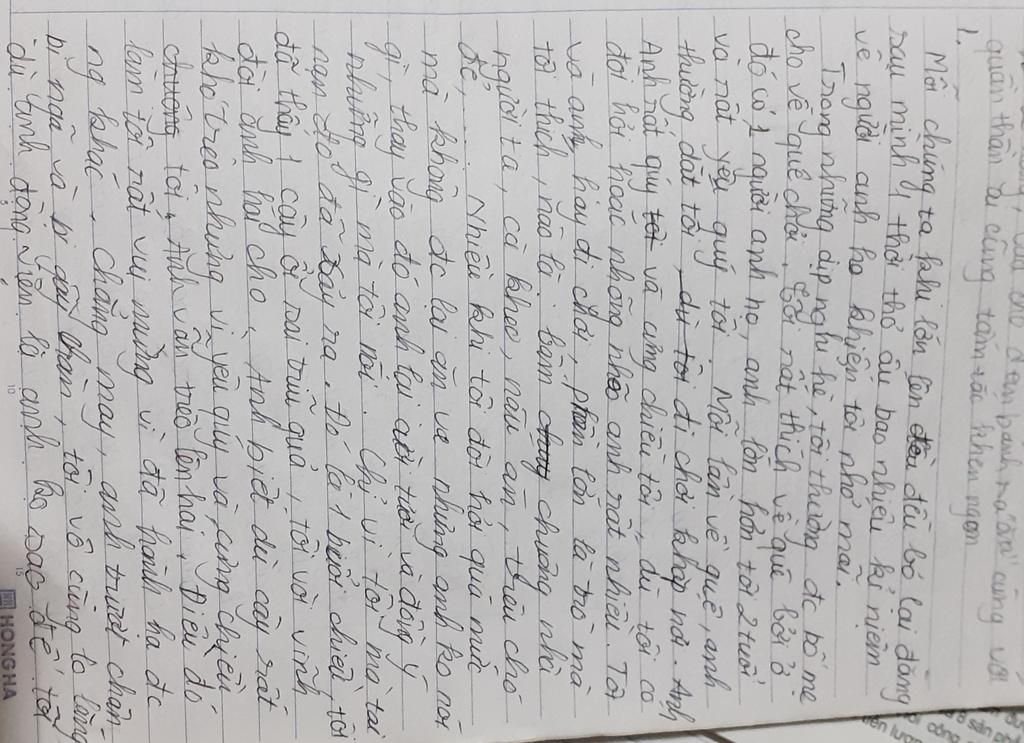 quân thần ai cũng tấm tắc khen ngon
1.
Mỗi chúng ta khi lớn lên đều đều bỏ lại đằng
sau mình 1 thời thơ ấu bao nhiêu kỉ niệm
về người anh họ khiến tôi nhớ mãi.
Trong những dịp nghỉ hè, tôi thường đc bố mẹ
cho về quê chơi. Tôi rất thích về quê bởi ở
đó có 1 người anh họ, anh lớn hơn tôi 2 tuổi
và rất yêu quý tôi. Mỗi lần về quê, anh
thường dắt tôi đi chơi khắp nơi. Anh
Anh rất quý tôi và cưng chiều tôi, dù tôi có
đòi hỏi hoặc nhõng nhẽo anh rất nhiều. Tôi
và anh hay đi chơi, phần lớn là trò mà
tôi thích, nào là: bấm chuông nhà
người ta, cà kheo, nấu ăn, trêu chó
dê,..... Nhiều khi tôi đòi hỏi quá mức
mà không đc lại ăn vạ nhưng anh ko nói
gì, thay vào đó anh lại cười tươi và đồng ý
những gì mà tôi nói. Chỉ vì tôi mà tai
nạn đó đã xảy ra. Đó là 1 buổi chiều, tôi
đã thấy 1 cây ổi sai trĩu quả, tôi vòi vĩnh
đòi anh hái cho. Anh biết dù cây rất
khó trèo nhưng vì yêu quý và cưng chiều
tôi, Anh vẫn trèo lên hái. Điều đó
làm tôi rất vui mừng vì đã hành hạ đc
ng khác. Chẳng may, anh trượt chân
bị ngã và bị gãy chân, tôi vô cùng lo lắng
dù Vinh động viên là anh ko sao để tôi
HONG HA